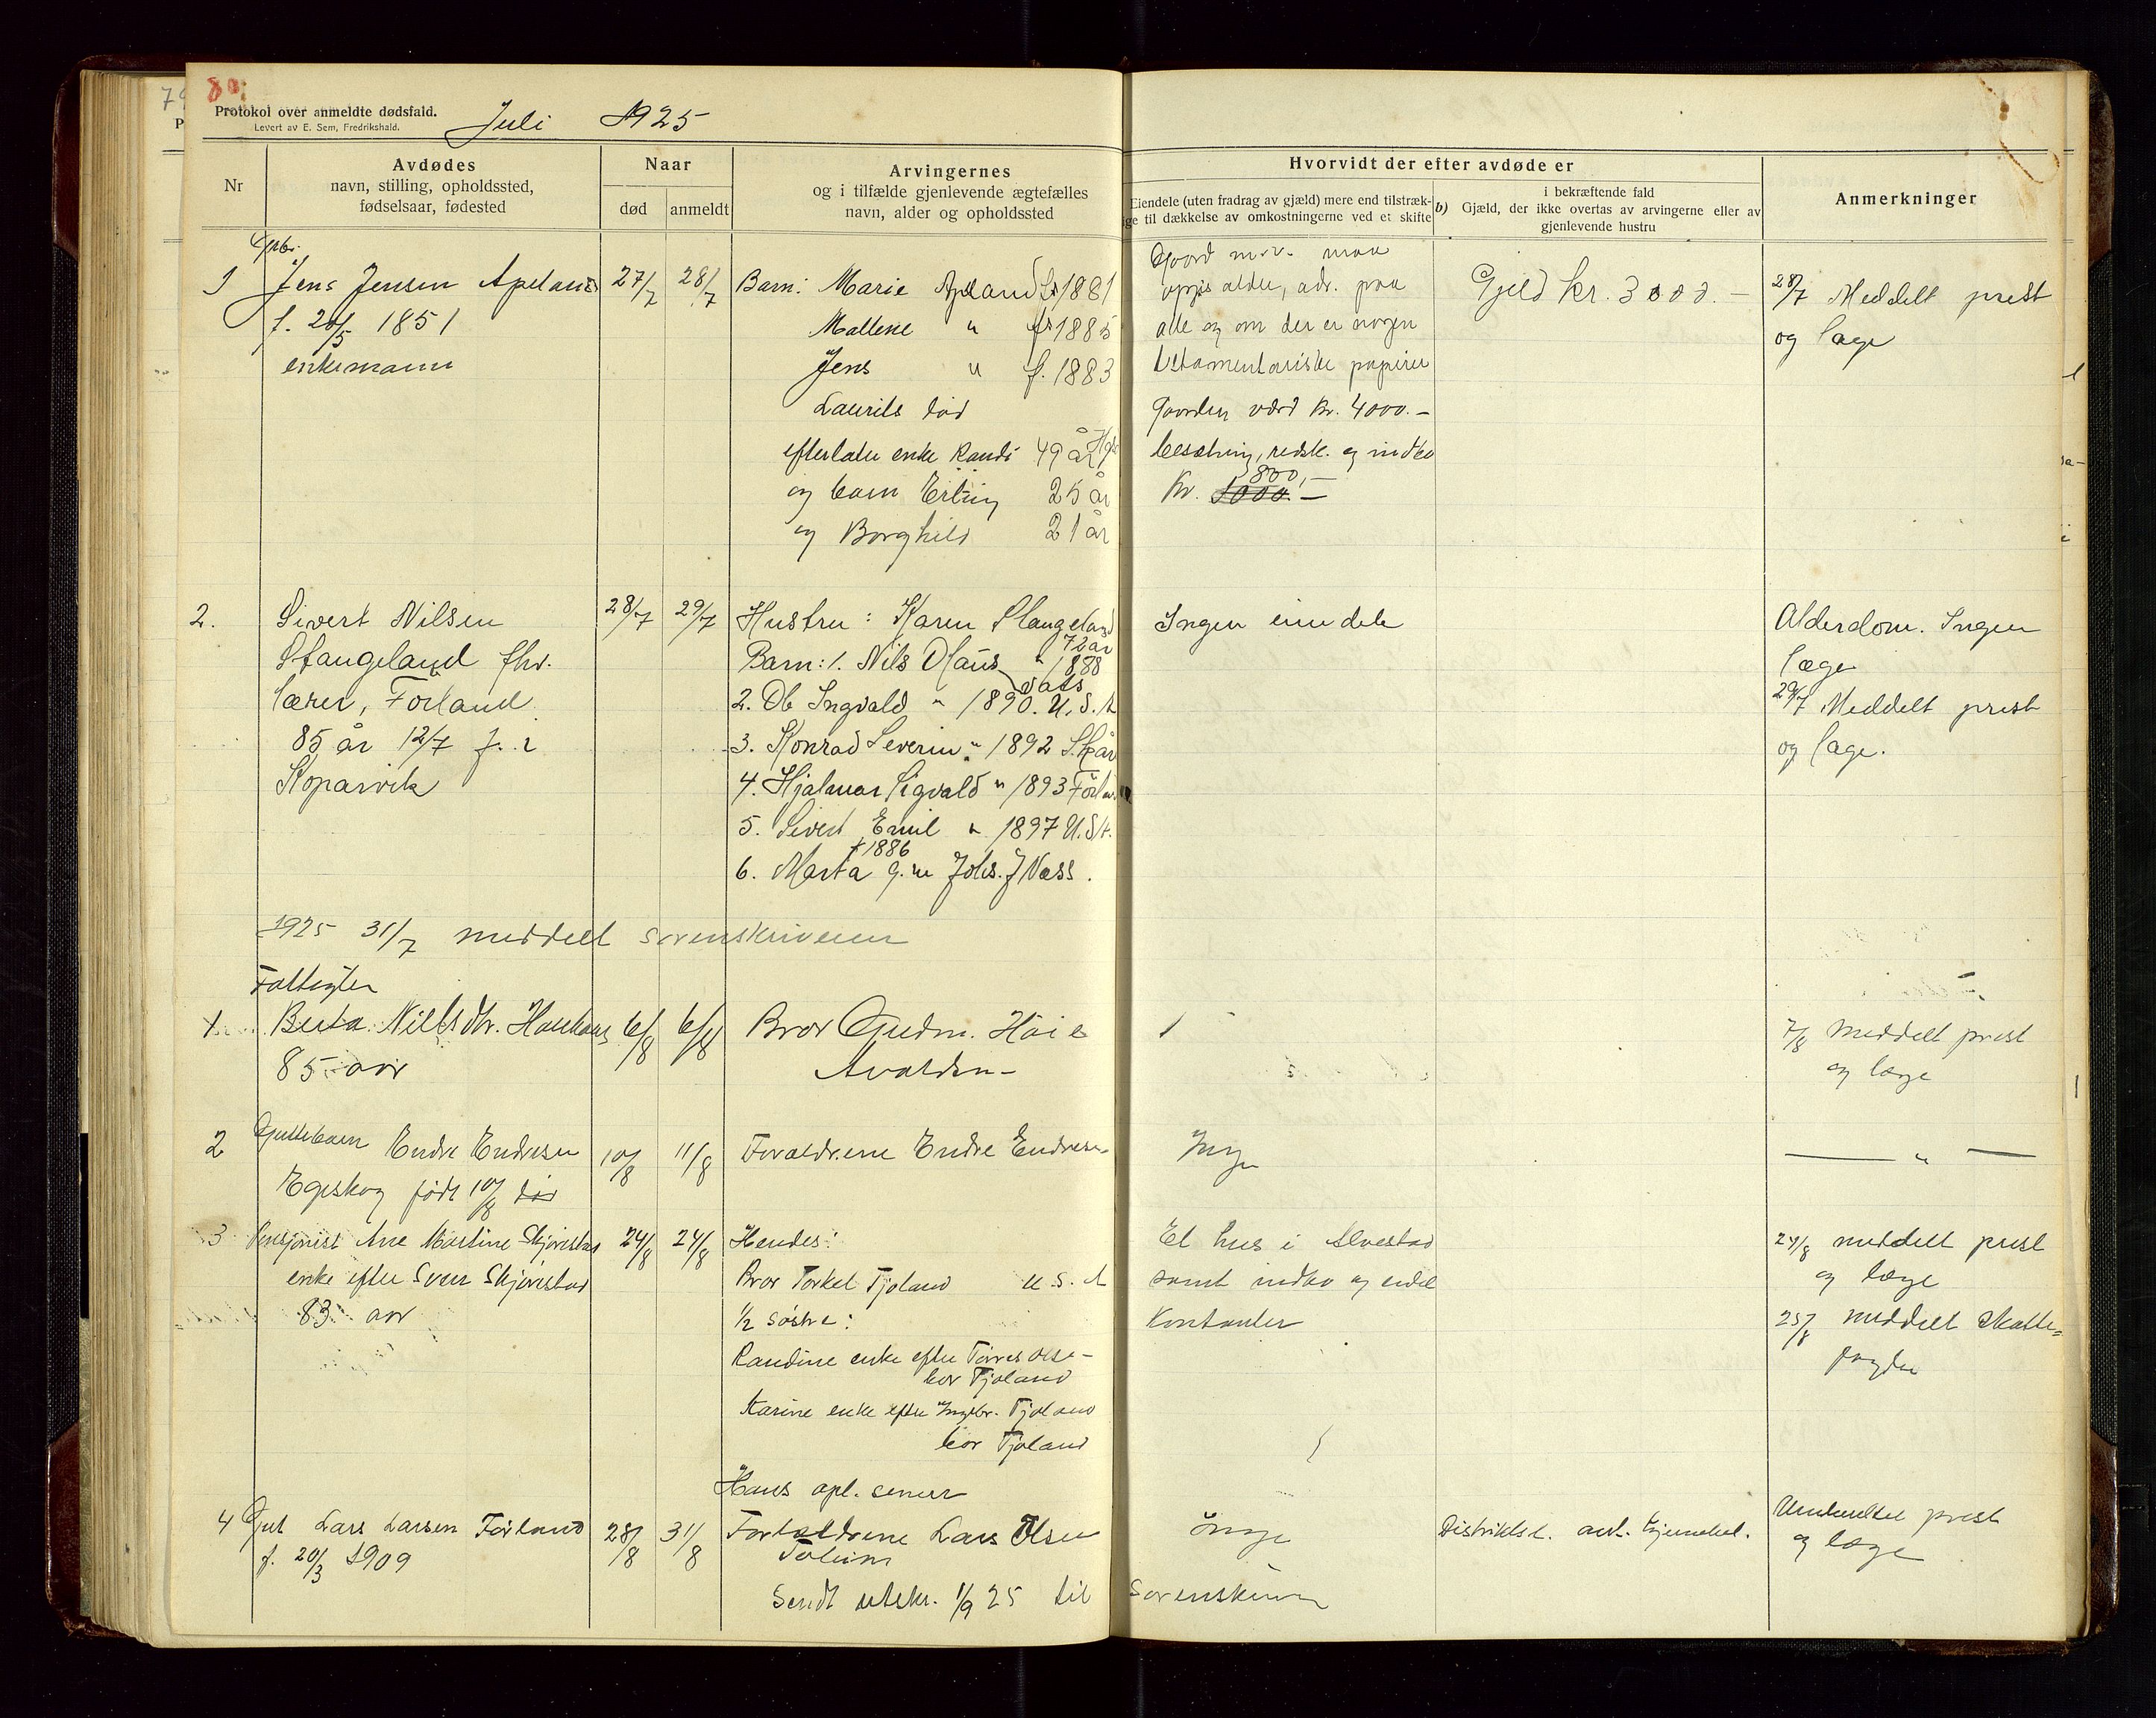 80
Protokol over anmeldte dødsfald.
Levert av E. Sem, Fredrikshald.
Juli 1925
Nr
Avdødes
navn, stilling, opholdssted,
fødselsaar, fødested
Naar
død
anmeldt
Arvingernes
og i tilfælde gjenlevende ægtefælles
navn, alder og opholdssted
Hvorvidt der efter avdøde er
Eiendele (uten fradrag av gjæld) mere end tilstræk-
ige til dækkelse av omkostningerne ved et skifte
b)
i bekræftende fald
Gjæld, der ikke overtas av arvingerne eller av
gjenlevende hustru
Anmerkninger
1
Jens Jensen Apeland
f. 20/5 1851
enkemann
27/7
28/7
Barn: Marie Apeland f. 1881
Mallene " f. 1885
Jens " f. 1883
Laurits død
efterlater enke Randi 49 år
og barn Erling 25 år
og Borghild 21 år
Gaard m.v. maa
opgis alder, adr. paa
alle og om der er nogen
testamentariske papirer
Gaarden værd kr. 4000.-
besætning, redsk. og indbo
800,-
kr. 1000.-
Gjeld kr. 3000.-
28/7 Meddelt prest
og læge
2.
Sivert Nilsen
Stangeland fhv.
lærer, Førland
85 år 12/7 f. i
Kopervik
28/7
29/7
Hustru: Karen Stangeland
72 år
Barn: 1. Nils Olaus " 1888
Vats
2. Ob Ingvald " 1890. U.S.A
3. Konrad Severin " 1892 Skår
4. Hjalmar Sigvald " 1893
5. Sivert Emil " 1897 U.S.A.
f 1886
6. Marta g.m Johs. J Næss.
Ingen eiendele
Alderdom. Ingen
læge
29/7 Meddelt prest
og læge.
1925 31/7 meddelt sorenskriveren
1
Berta Nilsdtr.
85 aar
6/8
6/8
Bror Gudm. Høie
7/8 Meddelt prest
og læge
2
Guttebarn Endre Endresen
Egeskog født 10/8 død
10/8
11/8
Forældrene Endre Endresen
Ingen
"
3
Pensjonist Ane Martine Skjørestad
enke efter Sven Skjørestad
83 aar
24/8
24/8
Hendes:
Bror Torkel Tjoland U.S.A
1/2 søstre:
Randine enke efter Torres Olsen
bor Tjoland
Karine enke efter Ingebr. Tjoland
bor Tjoland
Et hus i Alvestad
samt indbo og endel
kontanter
24/8 meddelt prest
og læge
25/8 meddelt skatte=
fogden
4
Gut Lars Larsen Førland
f. 20/3 1909
28/8
31/8
Forældrene Lars Olsen
Ingen
Meddelt prest
og læge
Sendt utskr. 1/9 25 til sorenskriver